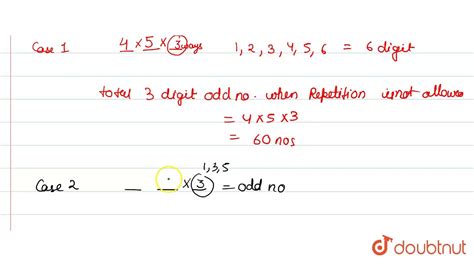 Case 1 4 × 5 × 3 ways 1, 2, 3, 4, 5, 6 = 6 digit
total 3 digit odd no. when Repetition is not allowed
= 4 × 5 × 3
= 60 nos
1, 3, 5
Case 2 _ _ × 3 = odd no
doubtnut